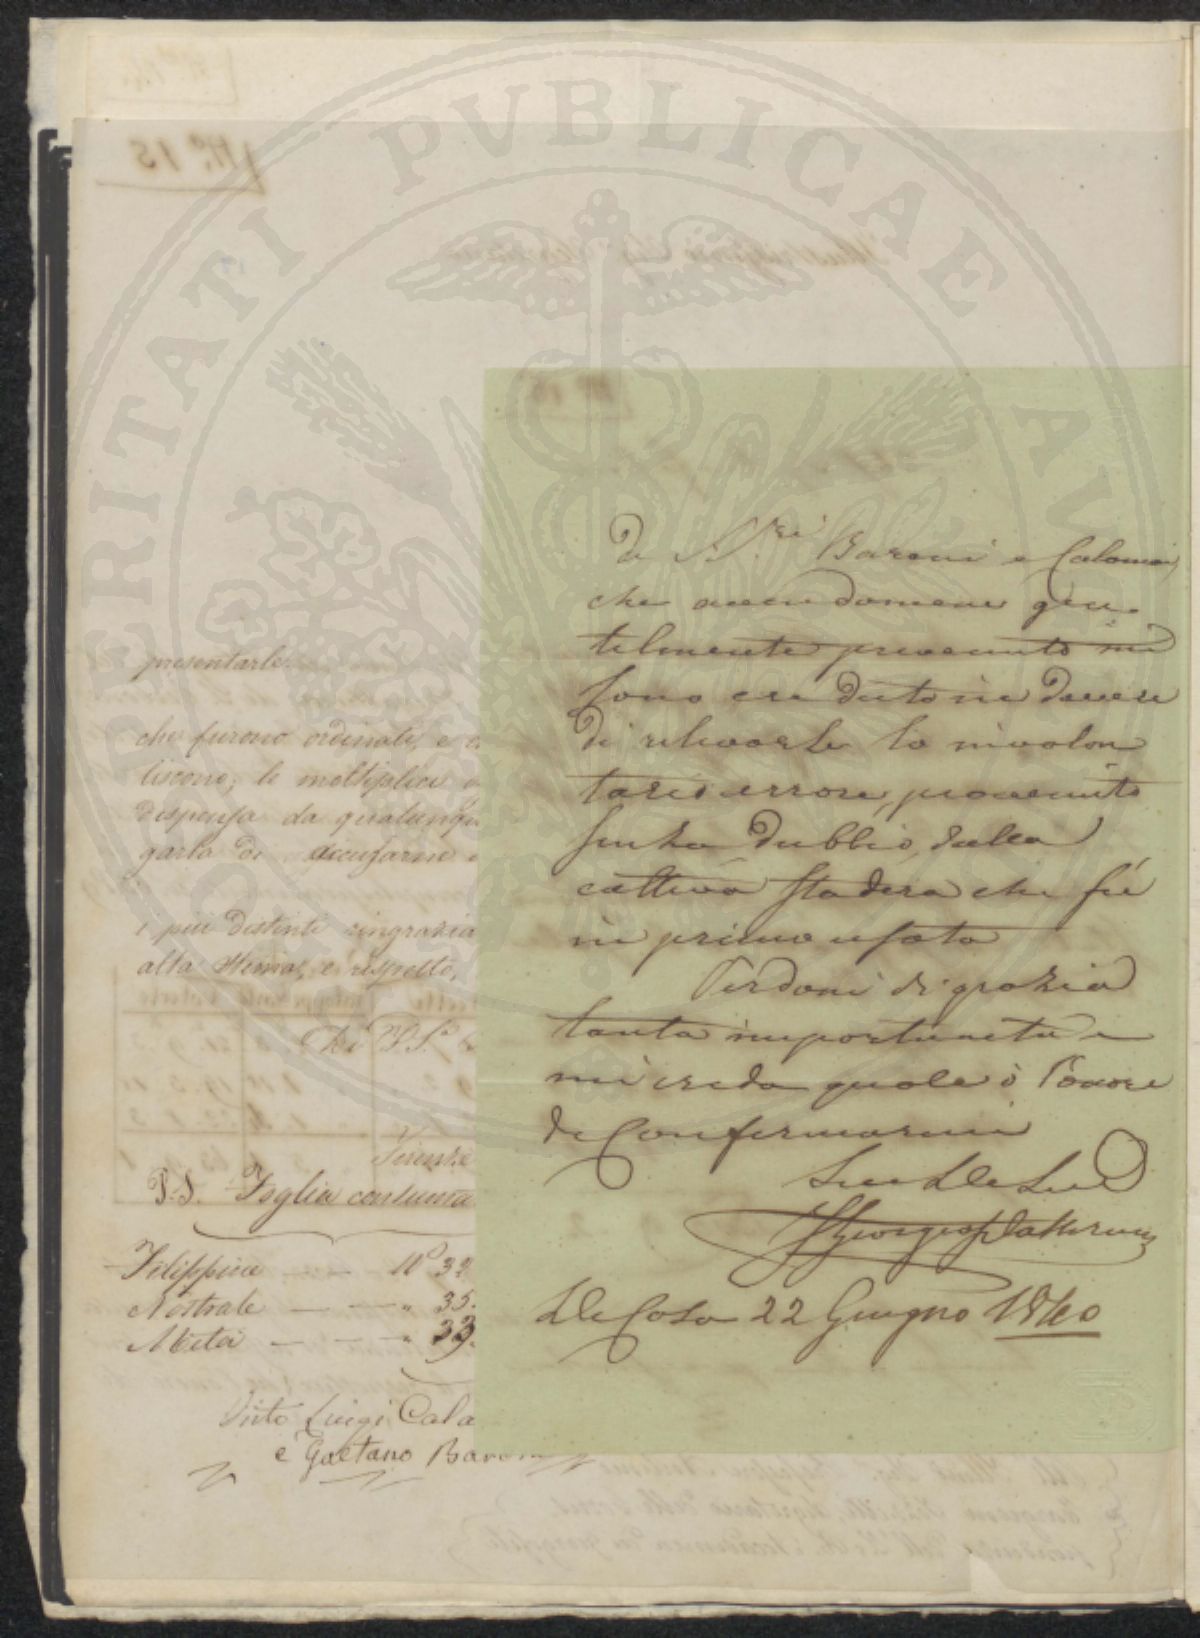 presentarle
che furono ordinati, e
liscono; le moltiplici
dispensa da qualunqu
garla di accusarne
i più distinti ringrazia
alta stima, e rispetto,
Di V.S.
Firenze
P.S. Foglia consuma
Filippine — — N° 32
Nostrale — — " 35.
Meta — — — " 33.
Visto Luigi Cala
e Gaetano Baroni
De S.ri Baroni e Calamai
che avendomene gen-
tilmente prevenuto mi
sono creduto in dovere
di rilevarle lo involon
tario errore, provenuto
senza dubbio, dalla
cattiva stadera che fù
in prima usata
Perdoni di grazia
tanta importunità e
mi creda quale ò l'onore
di Confermarmi
Di Casa 22 Giugno 1840
PERITATI PUBLICAE